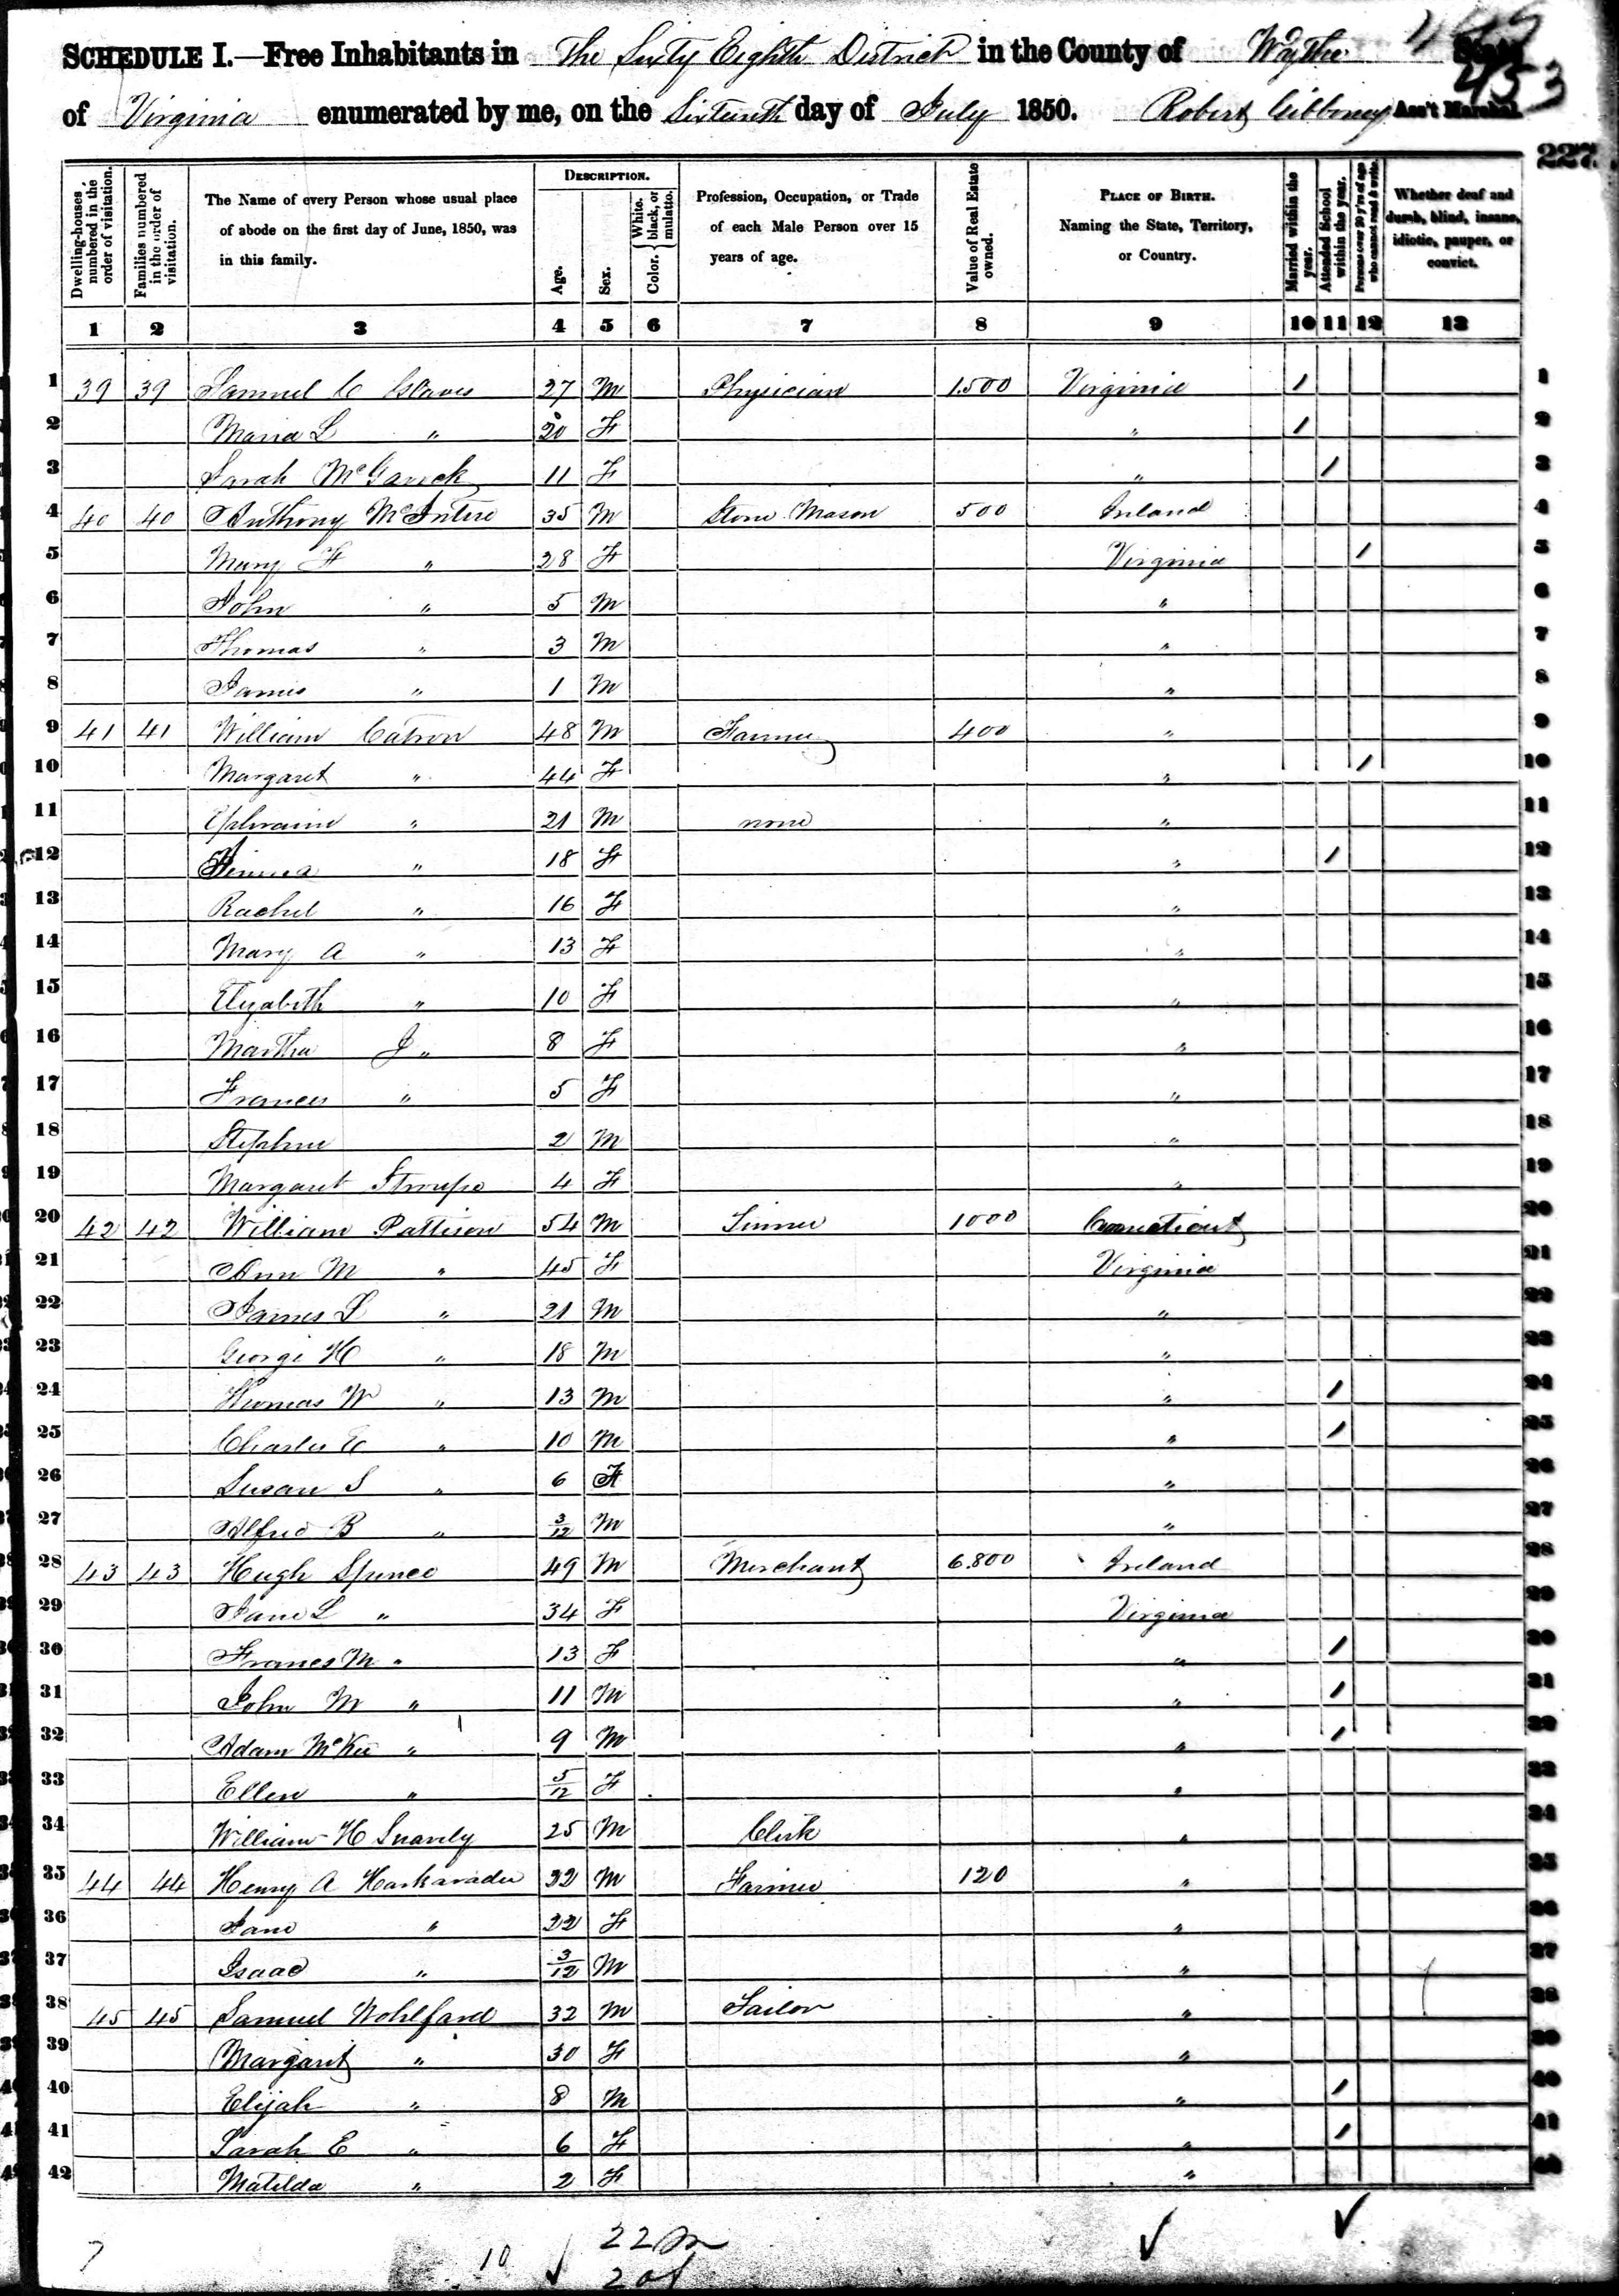 453
SCHEDULE I.—Free Inhabitants in The Sixty Eighth District in the County of Wythe State
of Virginia enumerated by me, on the Sixteenth day of July 1850. Robert Gibboney Ass't Marshal.
227
Dwelling-houses numbered in the order of visitation. Families numbered in the order of visitation. The Name of every Person whose usual place of abode on the first day of June, 1850, was in this family. DESCRIPTION. Age. Sex. Color. { White, black, or mulatto. Profession, Occupation, or Trade of each Male Person over 15 years of age. Value of Real Estate owned. PLACE OF BIRTH. Naming the State, Territory, or Country. Married within the year. Attended School within the year. Persons over 20 y'rs of age who cannot read & write. Whether deaf and dumb, blind, insane, idiotic, pauper, or convict.
1 2 3 4 5 6 7 8 9 10 11 12 13
1 39 39 Samuel C 27 M Physician 1.500 Virginia / 1
2 Maria L " 20 F " / 2
3 Sarah McGavock 11 F " / 3
4 40 40 Anthony McIntire 35 M Stone Mason 500 Ireland 4
5 Mary F " 28 F Virginia / 5
6 John " 5 M " 6
7 Thomas " 3 M " 7
8 James " 1 M " 8
9 41 41 William Catron 48 M Farmer 400 " 9
10 Margaret " 44 F " / 10
11 Ephraim " 21 M none " 11
12 " 18 F " / 12
13 Rachel " 16 F " 13
14 Mary A " 13 F " 14
15 Elizabeth " 10 F " 15
16 Martha J " 8 F " 16
17 Frances " 5 F " 17
18 Stephen 2 M " 18
19 Margaret Stroupe 4 F " 19
20 42 42 William Pattison 54 M Tinner 1000 Connecticut 20
21 Ann M " 45 F Virginia 21
22 James L " 21 M " 22
23 George H " 18 M " 23
24 Thomas W " 13 M " / 24
25 Charles E " 10 M " / 25
26 Susan S " 6 F " 26
27 Alfred B " 3/12 M " 27
28 43 43 Hugh Spence 49 M Merchant 6.800 Ireland 28
29 Jane L " 34 F Virginia 29
30 Frances M " 13 F " / 30
31 John M " 11 M " / 31
32 Adam McKee " 9 M " / 32
33 Ellen " 5/12 F " 33
34 William H Snavely 25 M Clerk " 34
35 44 44 Henry A Harkarader 32 M Farmer 120 " 35
36 Jane " 22 F " 36
37 Isaac " 3/12 M " 37
38 45 45 Samuel Wohlfard 32 M Tailor " 38
39 Margaret " 30 F " 39
40 Elijah " 8 M " / 40
41 Sarah E " 6 F " / 41
42 Matilda " 2 F " 42
7 10 ✓ 22 m ✓ ✓
20 f